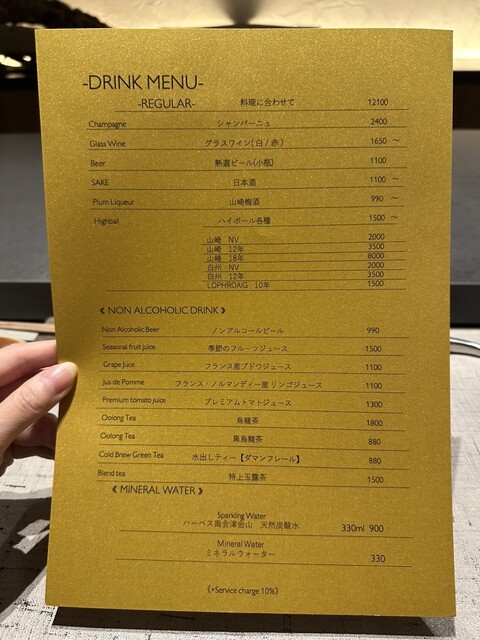 -DRINK MENU-
-REGULAR- 料理に合わせて 12100
Champagne シャンパーニュ 2400
Glass Wine グラスワイン(白/赤) 1650 ～
Beer 熟選ビール(小瓶) 1100
SAKE 日本酒 1100 ～
Plum Liqueur 山崎梅酒 990 ～
Highball ハイボール各種 1500 ～
山崎 NV 2000
山崎 12年 3500
山崎 18年 8000
白州 NV 2000
白州 12年 3500
LOPHROAIG 10年 1500
《 NON ALCOHOLIC DRINK 》
Non Alcoholic Beer ノンアルコールビール 990
Seasonal fruit juice 季節のフルーツジュース 1500
Grape Juce フランス産ブドウジュース 1100
Jus de Pomme フランス・ノルマンディー産 リンゴジュース 1100
Premium tomato juice プレミアムトマトジュース 1300
Oolong Tea 烏龍茶 1800
Oolong Tea 黒烏龍茶 880
Cold Brew Green Tea 水出しティー【ダマンフレール】 880
Blend tea 特上玉露茶 1500
《 MINERAL WATER 》
Sparkling Water
ハーベス奥会津金山 天然炭酸水 330ml 900
Mineral Water
ミネラルウォーター 330
《+Service charge 10%》